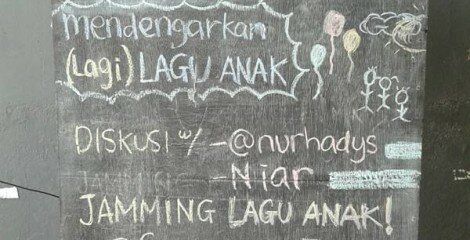 mendengarkan
(Lagi) LAGU ANAK
DISKUSI w/ - @nurhadys
- Niar
JAMMING LAGU ANAK!